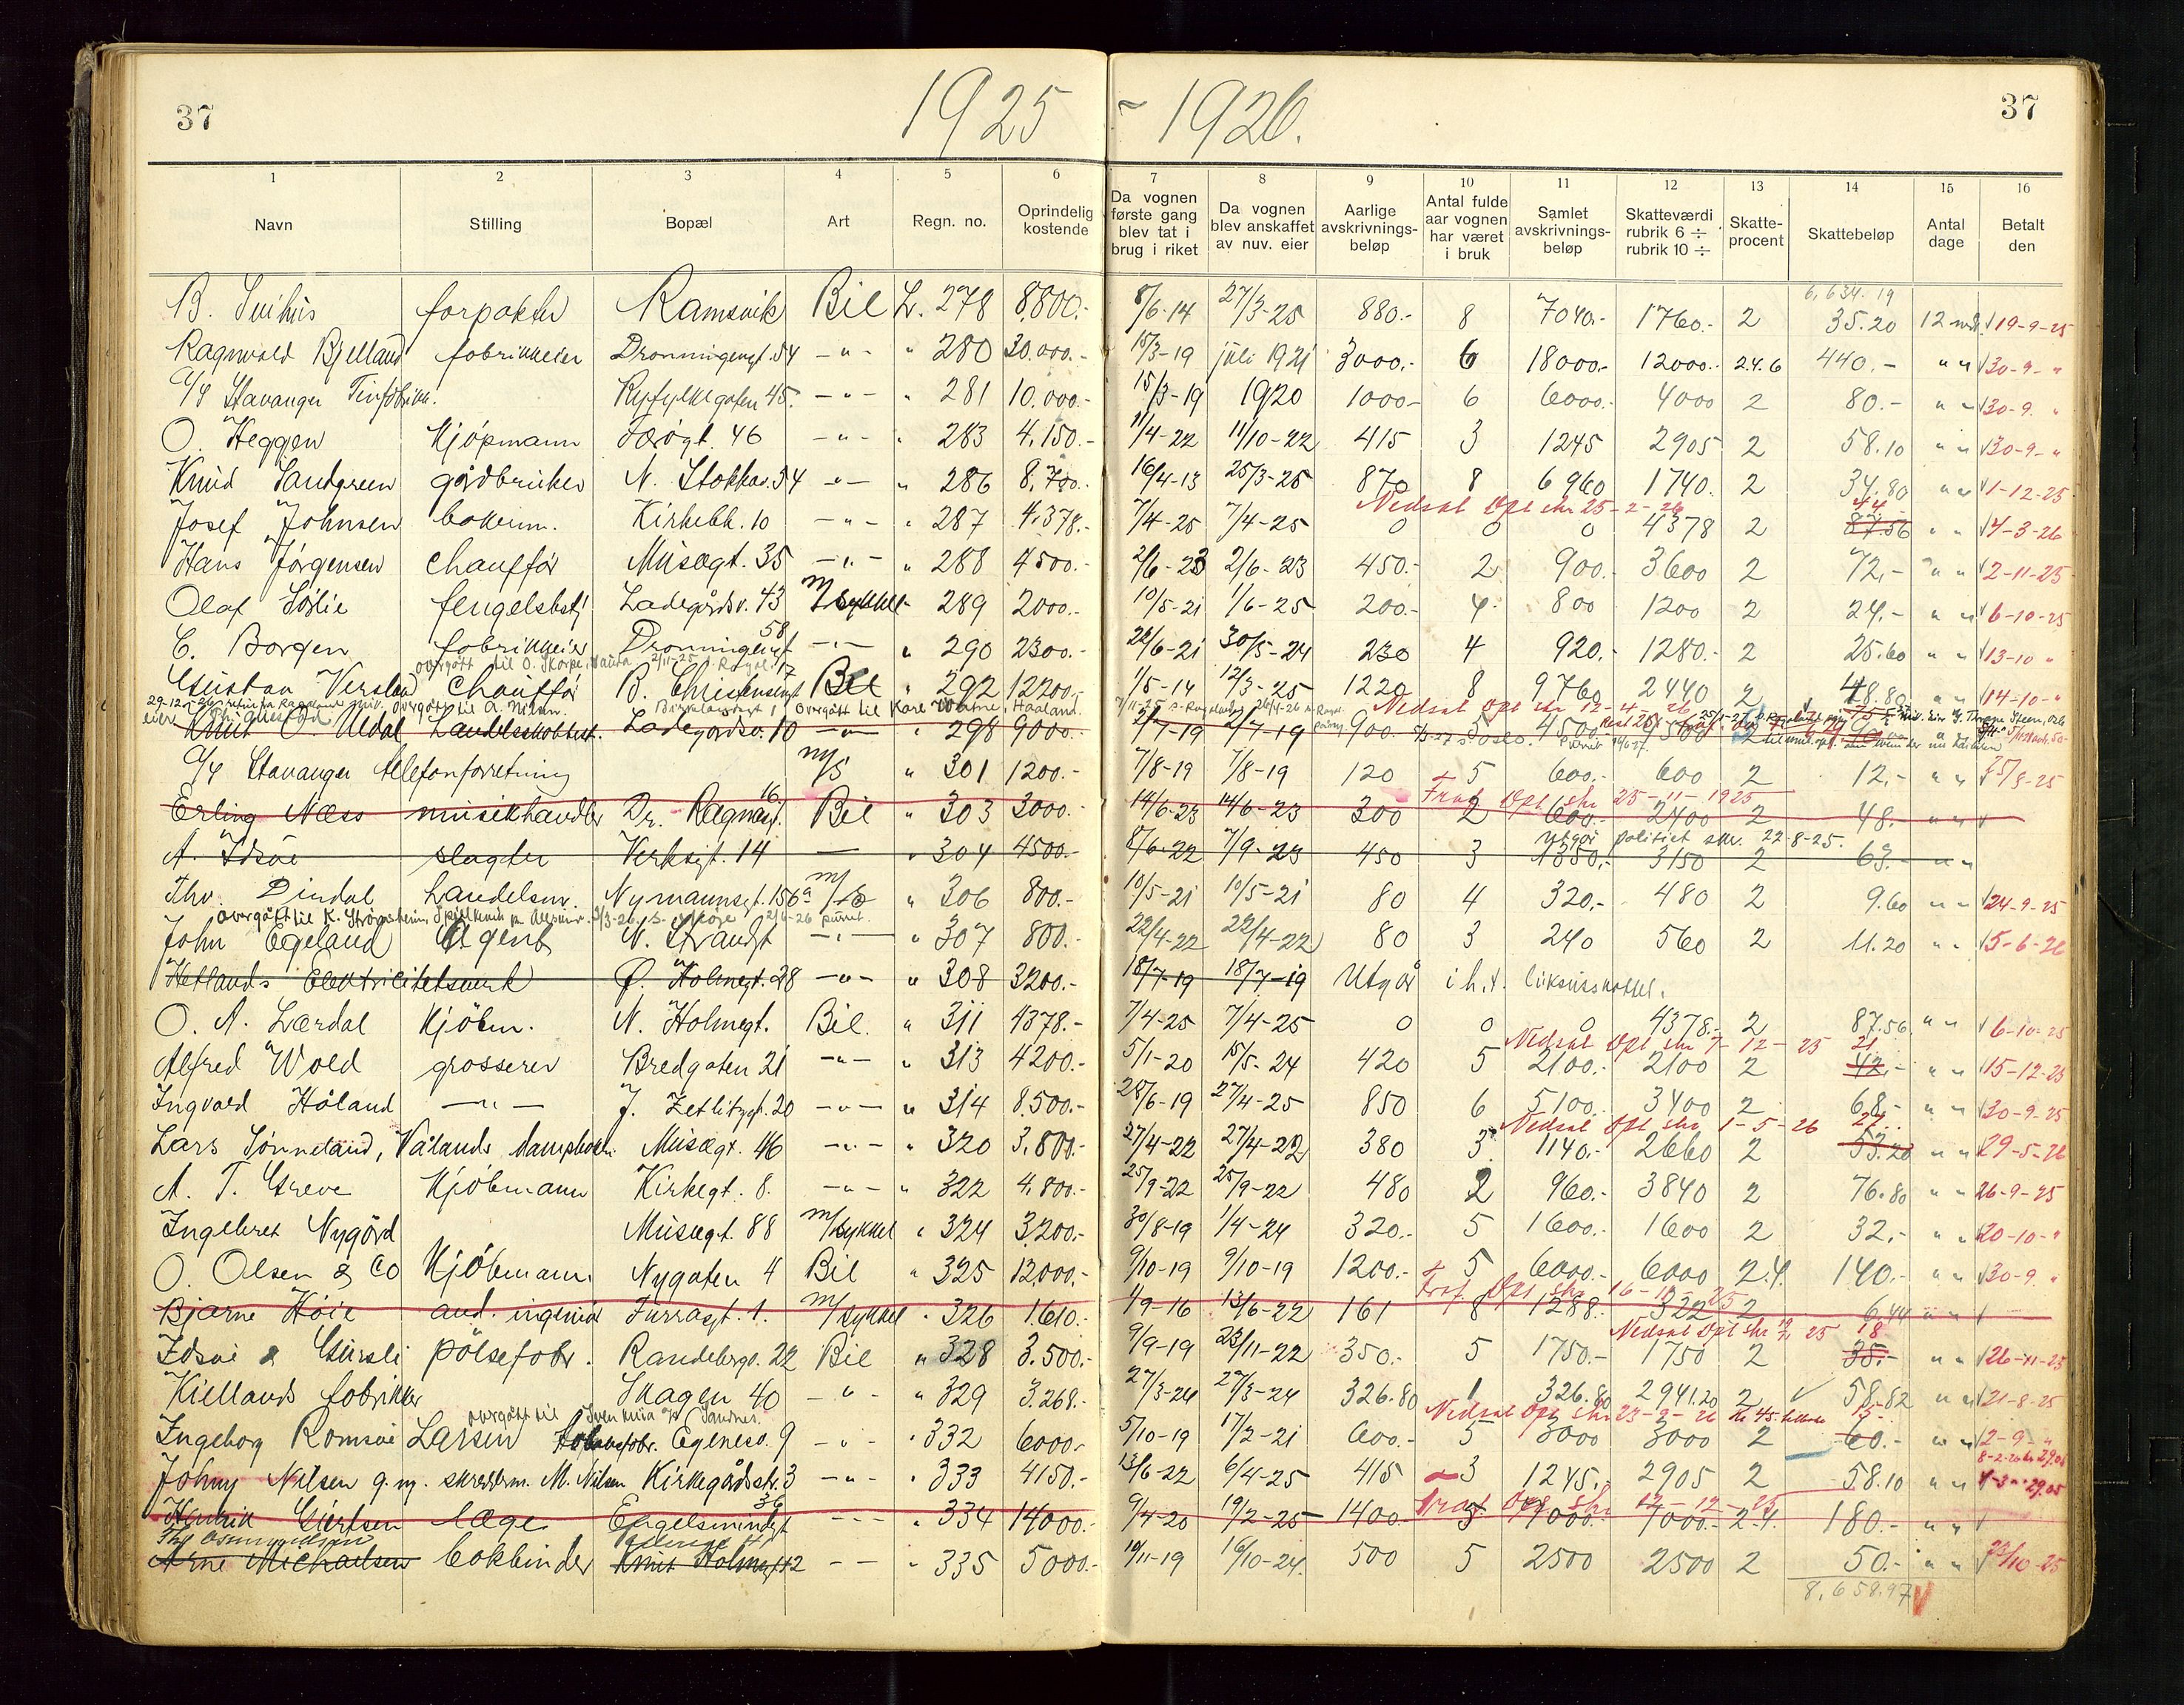 37
1925 - 1926.
37
1 2 3 4 5 6 7 8 9 10 11 12 13 14 15 16
Navn Stilling Bopæl Art Regn. no. Oprindelig kostende Da vognen første gang blev tat i brug i riket Da vognen blev anskaffet av nuv. eier Aarlige avskrivnings-beløp Antal fulde aar vognen har været i bruk Samlet avskrivnings-beløp Skatteværdi rubrik 6 ÷ rubrik 10 ÷ Skatte-procent Skattebeløp Antal dage Betalt den
6,634.19
B. forpakter Ramsvik Bil L. 278 8800.- 8/6-14 27/3-25 880.- 8 7040.- 1760.- 2 35.20 12 mdr. √19-9-25
Ragnvald Bjelland fabrikkeier Dronningengt. 54 -"- " 280 30.000.- 15/3-19 juli 1921 3000.- 6 18000.- 12000.- 2.4.6 440.- " " √30-9- "
A/S Stavanger Tinfabrikk. Ryfylkegaten 45. -"- " 281 10.000.- 15/3-19 1920 1000- 6 6000.- 4000 2 80.- " " √30-9. "
O. Heggen Kjøpmann Færøgt. 46 -"- " 283 4.150.- 11/4-22 11/10-22 415 3 1245 2905 2 58.10 " " √30-9- "
Knud Sandgreen gårdbruker N. Stokkav. 54 -"- " 286 8.700.- 16/4-13 25/3-25 870 8 6960 1740. 2 34.80 " " √1-12-25
Nedsat Opl skr 25-2-26 44
Josef Johnsen Kirkebk. 10 -"- " 287 4.378.- 7/4-25 7/4-25 0 0 0 4378 2 87.56 " " √4-3-26
Hans Jørgensen chauffør Musegt. 35 -"- " 288 4500.- 2/6-23 2/6-23 450.- 2 900.- 3600 2 72,- " " √2-11-25
Olaf Sørlie fengelsbetj Ladegårdsv. 43 M/sykkel " 289 2000.- 10/5-21 1/6-25 200.- 4. 800 1200 2 24.- " " √6-10-25
C. Borgen fabrikkeier Dronningengt 58 -"- " 290 2300.- 22/6-21 30/5-24 230 4 920.- 1280.- 2 25.60 " " √13-10 "
overgått til O. Skarpe, 2/11-25
Gustav Versland Chauffør B. Christensengt 17 Bil " 292 12200.- 1/5-14 12/3-25 1220 8 9760 2440 2 48.80 " " √14-10-"
overgått til A. Nilsen overgått til Karl Watne, Haaland. Nedsat Opl skr 12-4-26
Knut O. Uldal Ladegårdsv. 10 -"- " 298 9000.- 2/7-19 2/7-19 900.- 5 4500.- 4500 2
A/S Stavanger Telefonforretning m/S " 301 1200.- 7/8-19 7/8-19 120 5 600.- 600 2 12.- " " 25/8-25
Fraf. Opl skr 25-11-1925
Erling Næss musikhandler Dr. Ragnasgt. 16 Bil " 303 3000.- 14/6-23 14/6-23 300 2 600.- 2400 2 48.- " " √
utgår politiet skr. 22-8-25.
A. Idsøe slagter Verksgt. 14 — " 304 4500.- 8/6-22 7/9-23 450 3 1350.- 3150 2 63.- " "
Thv. Dindal Nymannsgt. 156a m/S " 306 800.- 10/5-21 10/5-21 80 4 320.- 480 2 9.60 " " √24-9-25
overgått til K. Strømsheim,
John Egeland Agent N. Strandgt -"- " 307 800.- 22/4-22 22/4-22 80 3 240 560 2 11.20 " " √5-6-26
Hetlands Elektricitetsverk Ø. Holmegt. 28 -"- " 308 3200.- 18/7-19 18/7-19 Utgår i h.t. luksusskattel.
O. A. Lærdal Kjøbm. N. Holmegt. Bil. " 311 4378.- 7/4-25 7/4-25 0 0 0 4378.- 2 87.56 " " √6-10-25
Nedsat Opl skr 7-12-25 21
Alfred Wold grosserer Bredgaten 21 -"- " 313 4200.- 5/1-20 15/5-24 420 5 2100.- 2100 2 42.- " " √15-12-25
Ingvald Håland -"- J. Zetlitzgt. 20 -"- " 314 8.500.- 28/6-19 27/4-25 850 6 5100. 3400 2 68.- " " √30-9-25
Nedsat Opl skr 1-5-26 27.
Lars Sønneland, Vålands Musegt. 46 -"- " 320 3.800.- 27/4-22 27/4-22 380 3 1140.- 2660 2 53.20 " " √29-5-26
A. T. Greve Kjøbmann Kirkegt. 8. -"- " 322 4.800.- 25/9-22 25/9-22 480 2 960.- 3840 2 76.80 " " 26-9-25
Ingebret Nygård Musegt. 88 m/sykkel " 324 3200.- 30/8-19 1/4-24 320.- 5 1600.- 1600 2 32.- " " √20-10-"
O. Olsen & Co Kjøbmann. Nygaten 4 Bil " 325 12,000.- 9/10-19 9/10-19 1200.- 5 6000.- 6000 2.4. 140.- " " √30-9. "
Fraf. Opl skr 16-10-25
Bjarne Høie aud. ingeniør Furrasgt. 1. m/sykkel " 326 1.610.- 1/9-16 13/6-22 161 8 1288.- 322 2 6.44 " " √
Nedsat Opl skr 25 18
Idsøe & pølsefabr. Randebergv. 22 Bil " 328 3.500.- 9/9-19 23/11-22 350.- 5 1750.- 1750 2 35.- " " √26-11-25
Kiellands fabrikker Skagen 40 -"- " 329 3.268.- 27/3-24 27/3-24 326.80 1 326.80 2941.20 2 58.82 " " √21-8-25
overgått til Sandnes. Nedsat Opl skr 23-2-26 15.-
Ingeborg Romsøe Larsen Egenesv. 9 -"- " 332 6000.- 5/10-19 17/2-21 600.- 5 3000 3000 2 60.- " " √2-9-"
Johny Nilsen M. Nilsen Kirkegårdsstr. 3 -"- " 333 4150.- 13/6-22 6/4-25 415 3 1245.- 2905 2 58.10 " "
Fraf. Opl skr 12-12-25
Henrik Gjertsen læge Engelsmindegt 36 -"- " 334 14000.- 9/4-20 19/2-25 1400.- 5 7000.- 7000.- 2.4. 180.- " " √
Arne Michaelsen bokbinder Knut Holmegt 12 -"- " 335 5000.- 10/11-19 16/10-24. 500 5 2500 2500 2 50.- " " 23/10-25
8,658.97